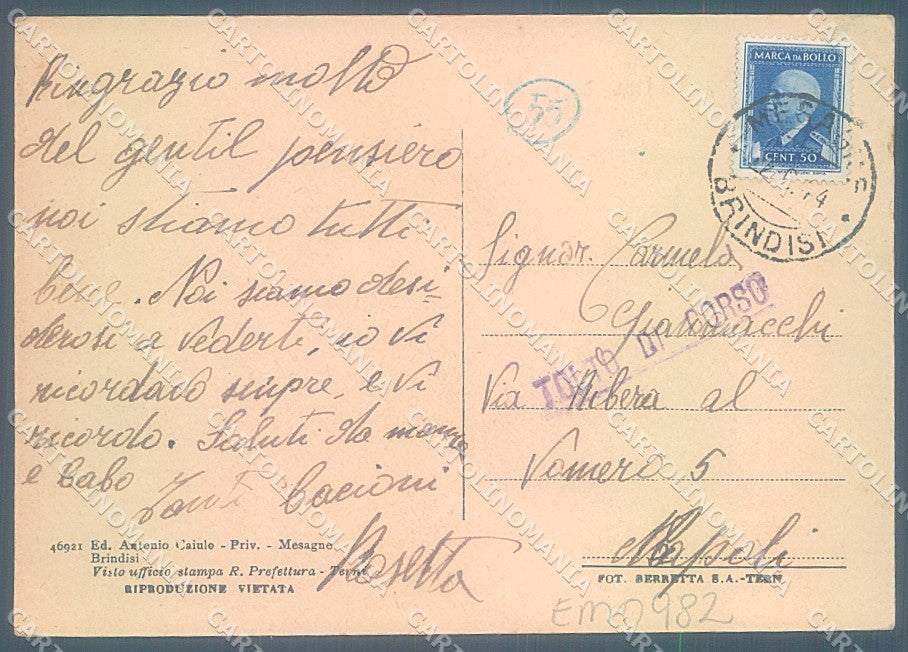 Ringrazio molto
del gentil pensiero
noi stiamo tutti
bene. Noi siamo desi-
derosi a vederti, io vi
ricordavo sempre, e vi
ricordo. Saluti da mamma
e babo Tanti bacioni
Rosetta
46921 Ed. Antonio Caiulo - Priv. - Mesagne
Brindisi
Visto ufficio stampa R. Prefettura - Terni
RIPRODUZIONE VIETATA
55
MARCA DA BOLLO
CENT 50
MESAGNE
BRINDISI
Signor. Carmela
TOLTO DI CORSO
Via Ribera al
Vomero 5
Napoli
FOT. BERRETTA S.A.-TERNI
EMO982
CARTOLINOMANIA